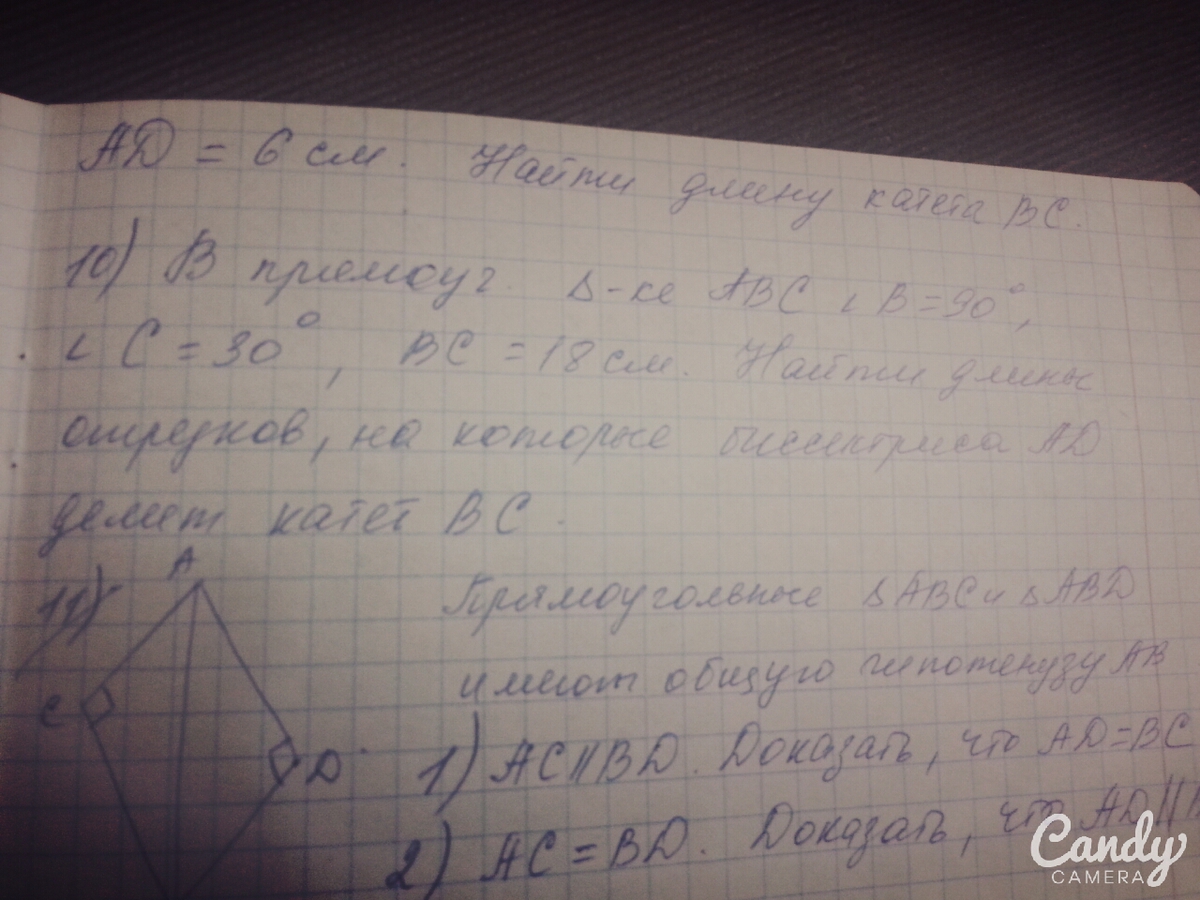 AD = 6 см. Найти длину катета BC.
10) В прямоуг. Δ-ке ABC ∠B=90°,
∠C=30°, BC=18 см. Найти длины
отрезков, на которые биссектриса AD
делит катет BC.
A
11) Прямоугольные ΔABC и ΔABD
имеют общую гипотенузу AB
C
D
1) AC||BD. Доказать, что AD=BC
2) AC=BD. Доказать, что AD||
Candy
CAMERA